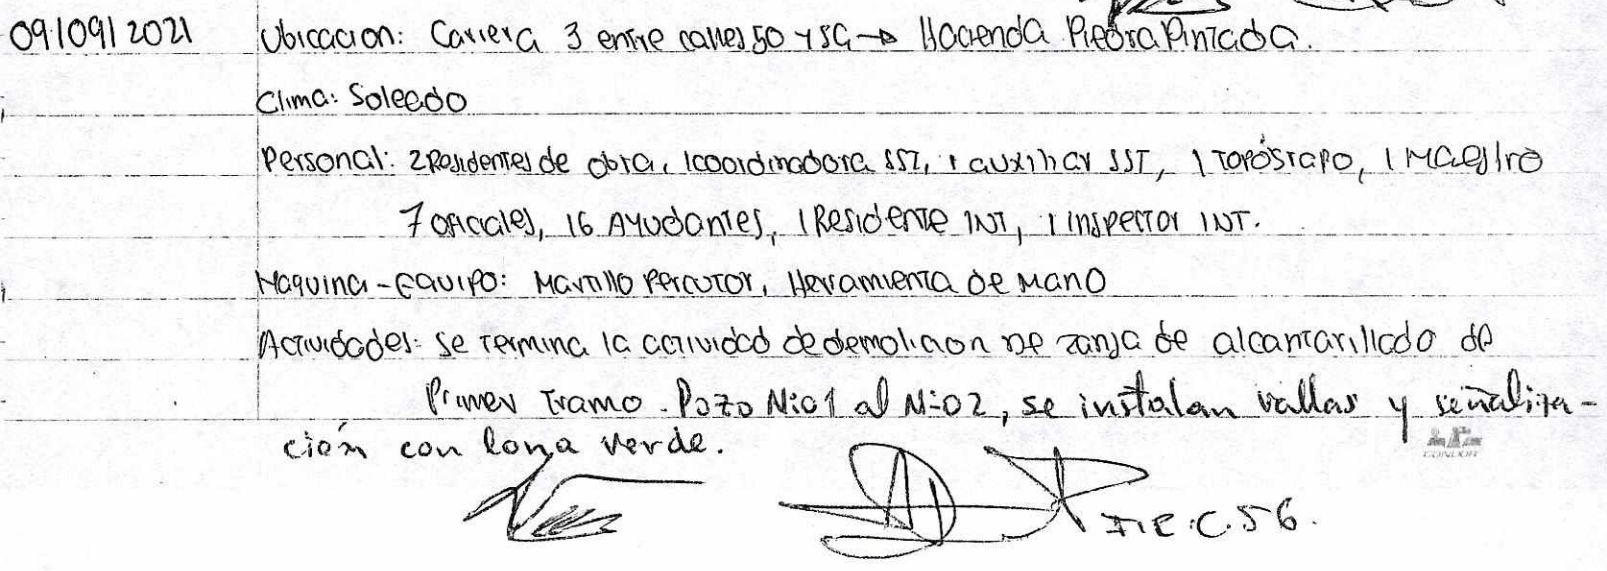 09/09/2021 Ubicacion: Carrera 3 entre calles 50 y 56 → Hacienda Piedra Pintada.
Clima: Soleado
Personal: 2 Residentes de obra, 1 coordinadora SST, 1 auxiliar SST, 1 Topógrapo, 1 Maestro
7 oficiales, 16 Ayudantes, 1 Residente INT, 1 inspector INT.
Maquina - Equipo: Martillo Percutor, Herramienta de Mano
Actividades: se termina la actividad de demolicion de zanja de alcantarillado de
Primer Tramo. Pozo N:01 al N:02, se instalan vallas y señaliza-
ción con lona verde.
CONDOR
C.56.